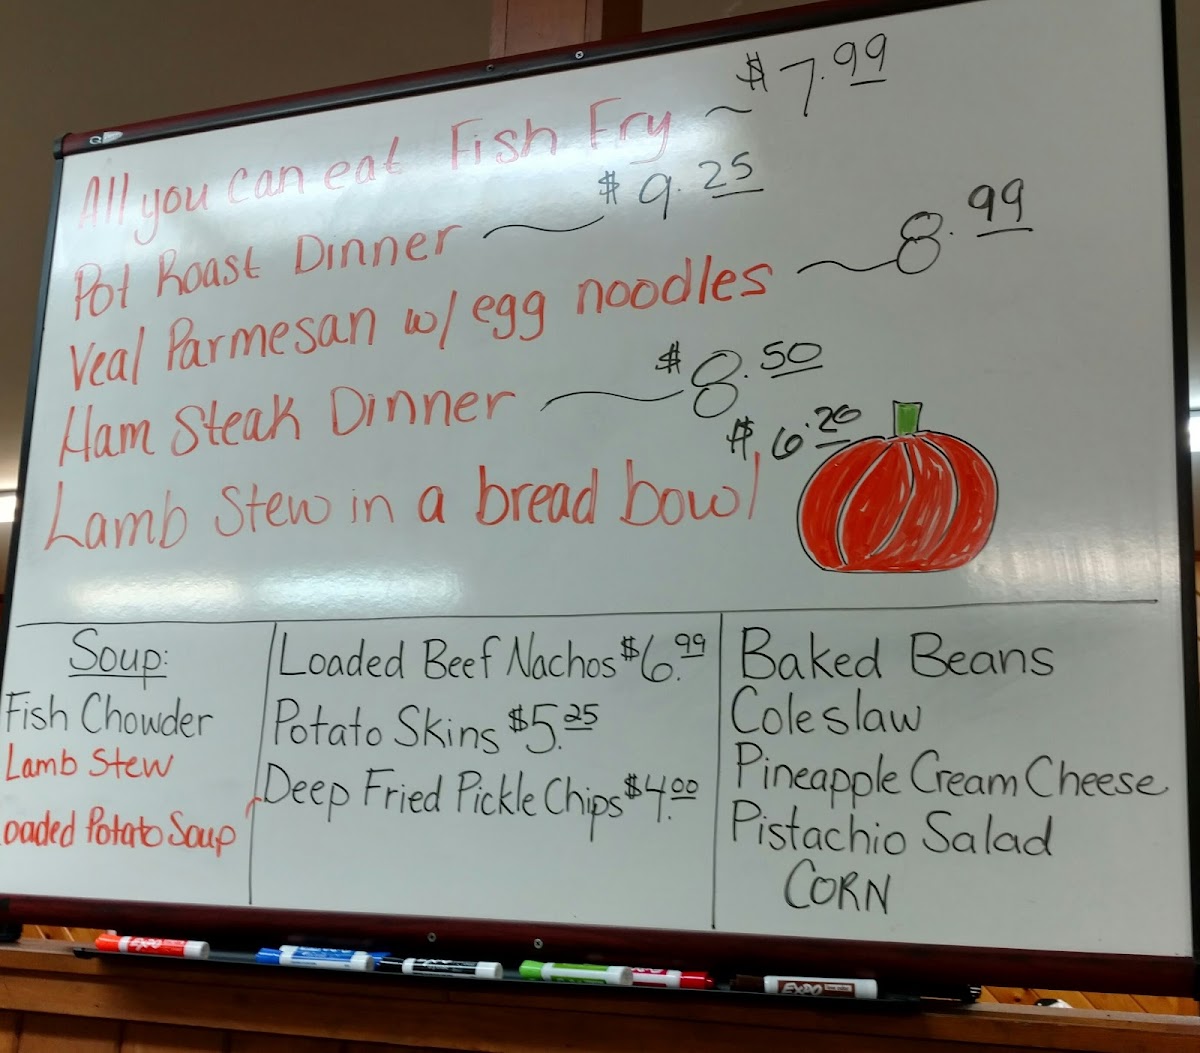 All you can eat Fish Fry ~ $7.99
Pot Roast Dinner ~ $9.25
Veal Parmesan w/ egg noodles ~ 8.99
Ham Steak Dinner ~ $8.50
Lamb Stew in a bread bowl $6.20
Soup:
Fish Chowder
Lamb Stew
oaded Potato Soup
Loaded Beef Nachos $6.99
Potato Skins $5.25
Deep Fried Pickle Chips $4.00
Baked Beans
Coleslaw
Pineapple Cream Cheese
Pistachio Salad
CORN
EXPO
EXPO